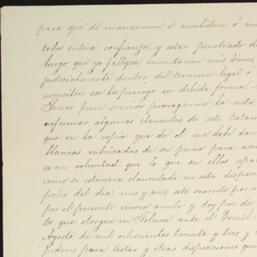 para que de mancomun é insolidum ó un
toda entera confianza, y estar penetrado de
luego que yo fallezca, inventaríen mis bienes
judicialmente dentro del termino legal ó
necesiten se les prorroga en debida forma
Señor fuere servido prorrogarme la vida,
reformar algunas clausulas de este testam
que en la copia que de él me debe dar,
blancas rubricadas de su puño para
es mi voluntad que lo que en ellas apar
como si estuviera clausulado en esta dispos
fecha del dia, mes y año, este suscrito por
por el presente revoco anulo y doy por de
to que otorgué en Toluca ante el
Agosto de mil ochocientos treinta y tres y
poderes para testar y otras disposiciones que